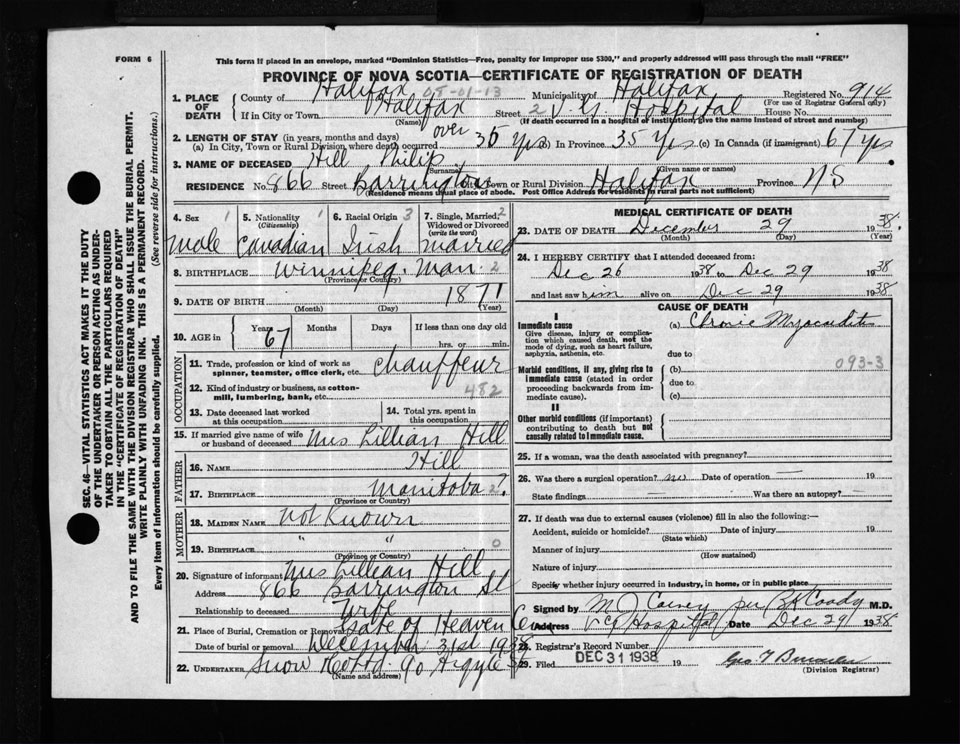 FORM 6
This form if placed in an envelope, marked "Dominion Statistics—Free, penalty for improper use $300," and properly addressed will pass through the mail "FREE"
PROVINCE OF NOVA SCOTIA—CERTIFICATE OF REGISTRATION OF DEATH
1. PLACE OF DEATH County of Halifax 08-01-13 Municipality of Halifax Registered No. 914
(For use of Registrar General only)
If in City or Town Halifax Street 2 V.G. Hospital House No.
(Name) (If death occurred in a hospital or institution, give the name instead of street and number)
2. LENGTH OF STAY (in years, months and days)
(a) In City, Town or Rural Division where death occurred over 35 Yrs (b) In Province 35 Yrs (c) In Canada (if immigrant) 67 Yrs
3. NAME OF DECEASED Hill Philip
(Surname) (Given name or names)
RESIDENCE No. 866 Street Barrington City, Town or Rural Division Halifax Province NS
(Residence means usual place of abode. Post Office Address for residents in rural parts not sufficient)
4. Sex 1 5. Nationality 1 (Citizenship) 6. Racial Origin 3 7. Single, Married, 2 Widowed or Divorced (write the word)
Male Canadian Irish Married
8. BIRTHPLACE Winnipeg. Man. 2
(Province or Country)
9. DATE OF BIRTH 1871
(Month) (Day) (Year)
10. AGE in Years 67 Months Days If less than one day old
hrs. or min.
OCCUPATION
11. Trade, profession or kind of work as spinner, teamster, office clerk, etc. Chauffeur
12. Kind of industry or business, as cotton-mill, lumbering, bank, etc. 482
13. Date deceased last worked at this occupation
14. Total yrs. spent in this occupation
15. If married give name of wife or husband of deceased Mrs Lillian Hill
FATHER
16. NAME Hill
17. BIRTHPLACE Manitoba 2.
(Province or Country)
MOTHER
18. MAIDEN NAME Not Known
19. BIRTHPLACE " " 0
(Province or Country)
20. Signature of informant Mrs Lillian Hill
Address 866 Barrington St
Relationship to deceased Wife
21. Place of Burial, Cremation or Removal Gate of Heaven Cem
Date of burial or removal December 31st 1938
22. UNDERTAKER Snow & Co Ltd. 90 Argyle St
(Name and address)
MEDICAL CERTIFICATE OF DEATH
23. DATE OF DEATH December 29 1938.
(Month) (Day) (Year)
24. I HEREBY CERTIFY that I attended deceased from:
Dec 26 1938 to Dec 29 1938
and last saw him alive on Dec 29 1938
CAUSE OF DEATH
I
Immediate cause
Give disease, injury or complication which caused death, not the mode of dying, such as heart failure, asphyxia, asthenia, etc.
(a) Chronic Myocarditis
due to
Morbid conditions, if any, giving rise to immediate cause (stated in order proceeding backwards from immediate cause).
(b) 093-3
due to
(c)
II
Other morbid conditions (if important) contributing to death but not causally related to immediate cause.
25. If a woman, was the death associated with pregnancy?
26. Was there a surgical operation? no Date of operation — 19
State findings — Was there an autopsy? —
27. If death was due to external causes (violence) fill in also the following:—
Accident, suicide or homicide? Date of injury 19
(State which)
Manner of injury
(How sustained)
Nature of injury
Specify whether injury occurred in industry, in home, or in public place
Signed by M J Carney per B K Coady M.D.
Address V G Hospital Date Dec 29 1938
28. Registrar's Record Number
29. Filed DEC 31 1938 19
(Division Registrar)
SEC. 46—VITAL STATISTICS ACT MAKES IT THE DUTY
OF THE UNDERTAKER OR PERSON ACTING AS UNDER-
TAKER TO OBTAIN ALL THE PARTICULARS REQUIRED
IN THE "CERTIFICATE OF REGISTRATION OF DEATH"
AND TO FILE THE SAME WITH THE DIVISION REGISTRAR WHO SHALL ISSUE THE BURIAL PERMIT.
WRITE PLAINLY WITH UNFADING INK. THIS IS A PERMANENT RECORD.
Every item of information should be carefully supplied. (See reverse side for instructions.)